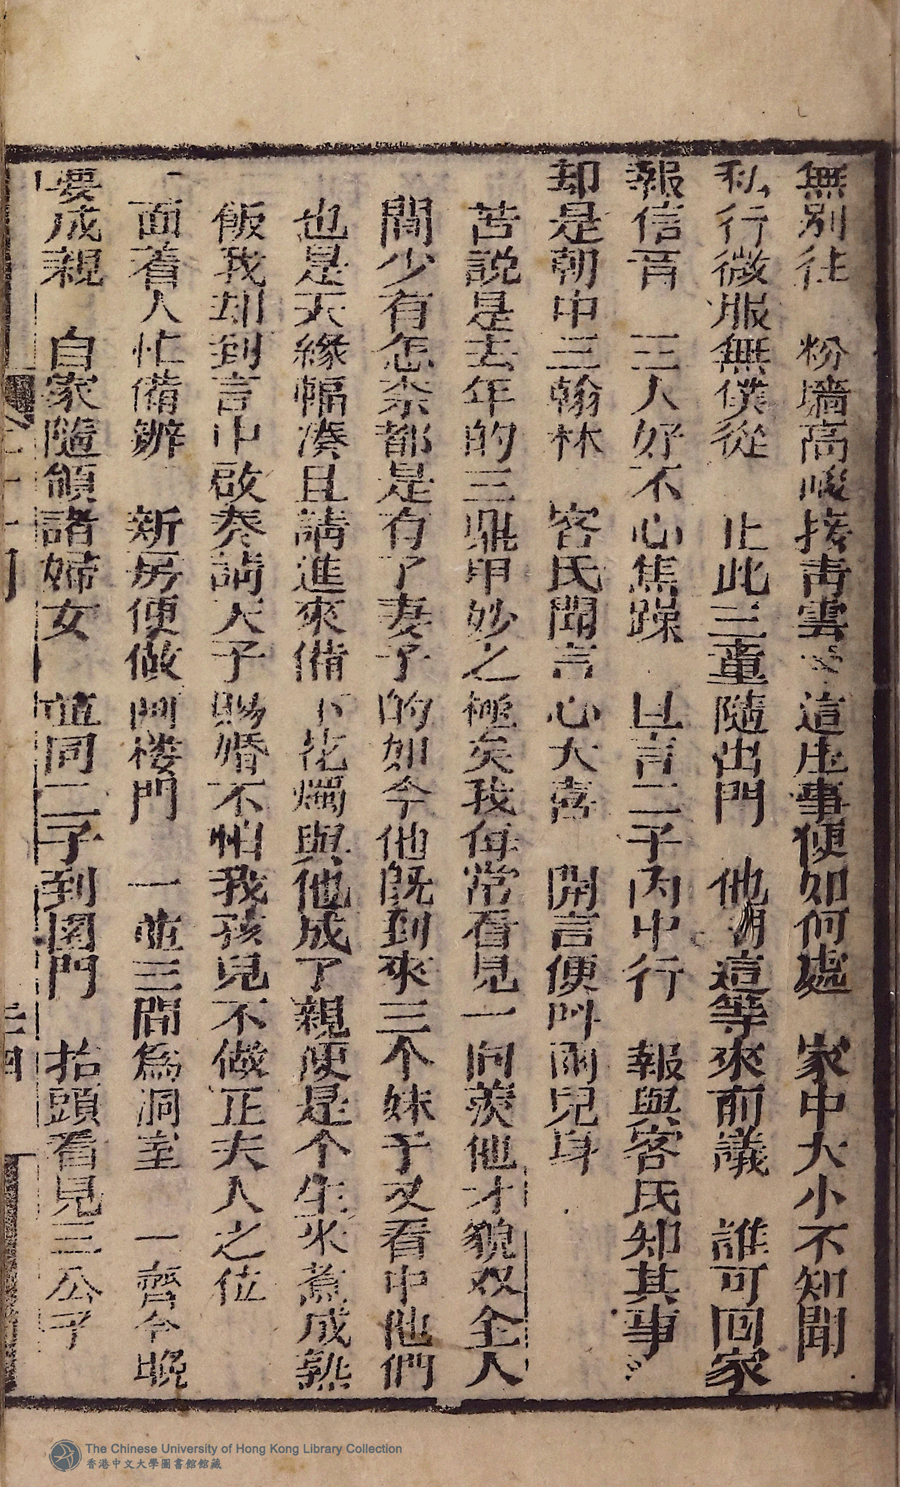 無別徃　粉墻高峻接青雲　這庄事便如何處　家中大小不知聞
私行微服無僕從　止此三童隨出門　他們這等來前議　誰可回家
報信音　三人好不心焦躁　且言二子內中行　報與客氏知其事
却是朝中三翰林　容氏聞言心大喜　開言便叫兩兒身
苦說是去年的三鼎甲妙之極矣我每常看見一向羨他才貌双全人
間少有怎奈都是有了妻子的如今他既到來三个妹子又看中他們
也是天緣幅湊且請進來備下花燭與他成了親便是个生米煮成熟
飯我却到宫中啟奏請天子賜婚不怕我孩兒不做正夫人之位
一面着人忙備辦　新房便做问楼門　一並三間為洞室　一齊今晚
要成親　自家隨領諸婦女　並同二子到園門　抬頭看見三公子
三四
The Chinese University of Hong Kong Library Collection
香港中文大學圖書館館藏